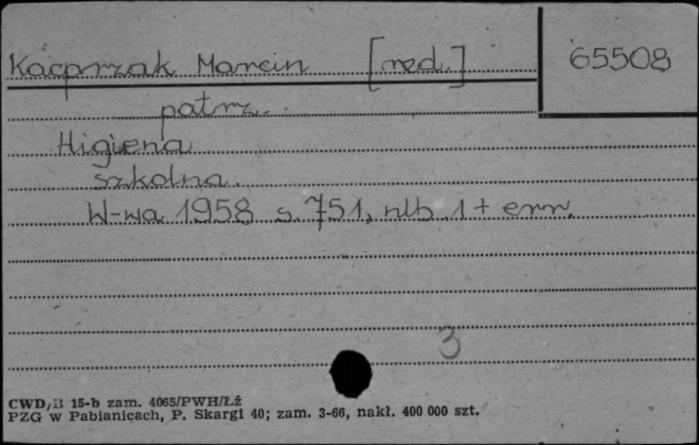 Kacprzak Marcin [red.]
65508
patrz.
Higiena
szkolna.
W-wa 1958 s. 751, nlb. 1 + err.
3
CWD/B 15-b zam. 4065/PWH/Łź
PZG w Pabianicach, P. Skargi 40; zam. 3-66, nakł. 400 000 szt.